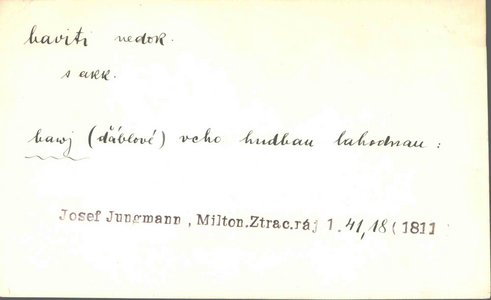 baviti nedok.
s akk.
bawj (ďáblové) ucho hudbau lahodnau :
Josef Jungmann , Milton.Ztrac.ráj 1.41,18 ( 1811